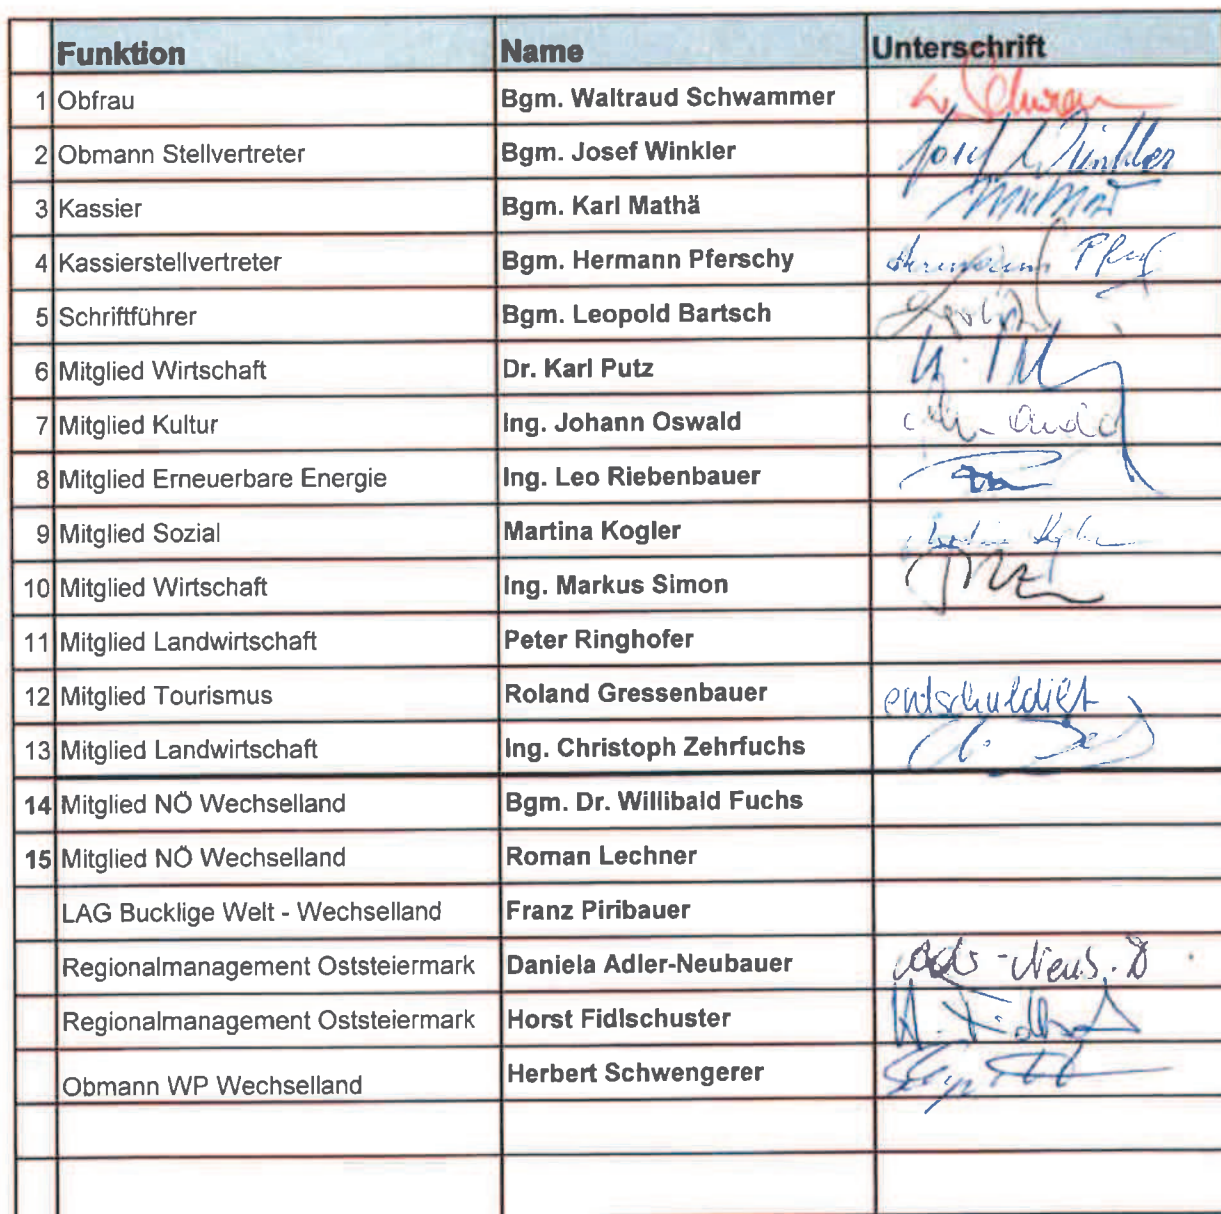 Funktion Name Unterschrift
1 Obfrau Bgm. Waltraud Schwammer
2 Obmann Stellvertreter Bgm. Josef Winkler Josef Winkler
3 Kassier Bgm. Karl Mathä
4 Kassierstellvertreter Bgm. Hermann Pferschy Hermann
5 Schriftführer Bgm. Leopold Bartsch
6 Mitglied Wirtschaft Dr. Karl Putz
7 Mitglied Kultur Ing. Johann Oswald
8 Mitglied Erneuerbare Energie Ing. Leo Riebenbauer
9 Mitglied Sozial Martina Kogler
10 Mitglied Wirtschaft Ing. Markus Simon
11 Mitglied Landwirtschaft Peter Ringhofer
12 Mitglied Tourismus Roland Gressenbauer entschuldigt
13 Mitglied Landwirtschaft Ing. Christoph Zehrfuchs
14 Mitglied NÖ Wechselland Bgm. Dr. Willibald Fuchs
15 Mitglied NÖ Wechselland Roman Lechner
LAG Bucklige Welt - Wechselland Franz Piribauer
Regionalmanagement Oststeiermark Daniela Adler-Neubauer
Regionalmanagement Oststeiermark Horst Fidlschuster
Obmann WP Wechselland Herbert Schwengerer